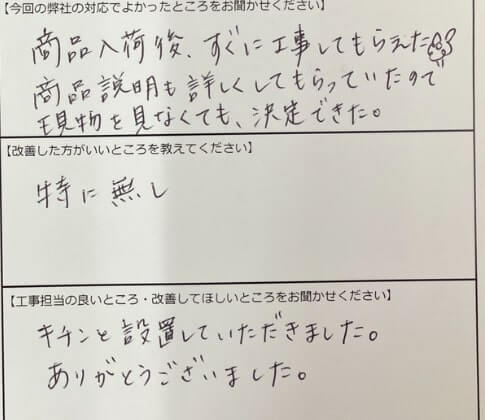 【今回の弊社の対応でよかったところをお聞かせください】
商品入荷後、すぐに工事してもらえた
商品説明も詳しくしてもらっていたので
現物を見なくても、決定できた。
【改善した方がいいところを教えてください】
特に無し
【工事担当の良いところ・改善してほしいところをお聞かせください】
キチンと設置していただきました。
ありがとうございました。